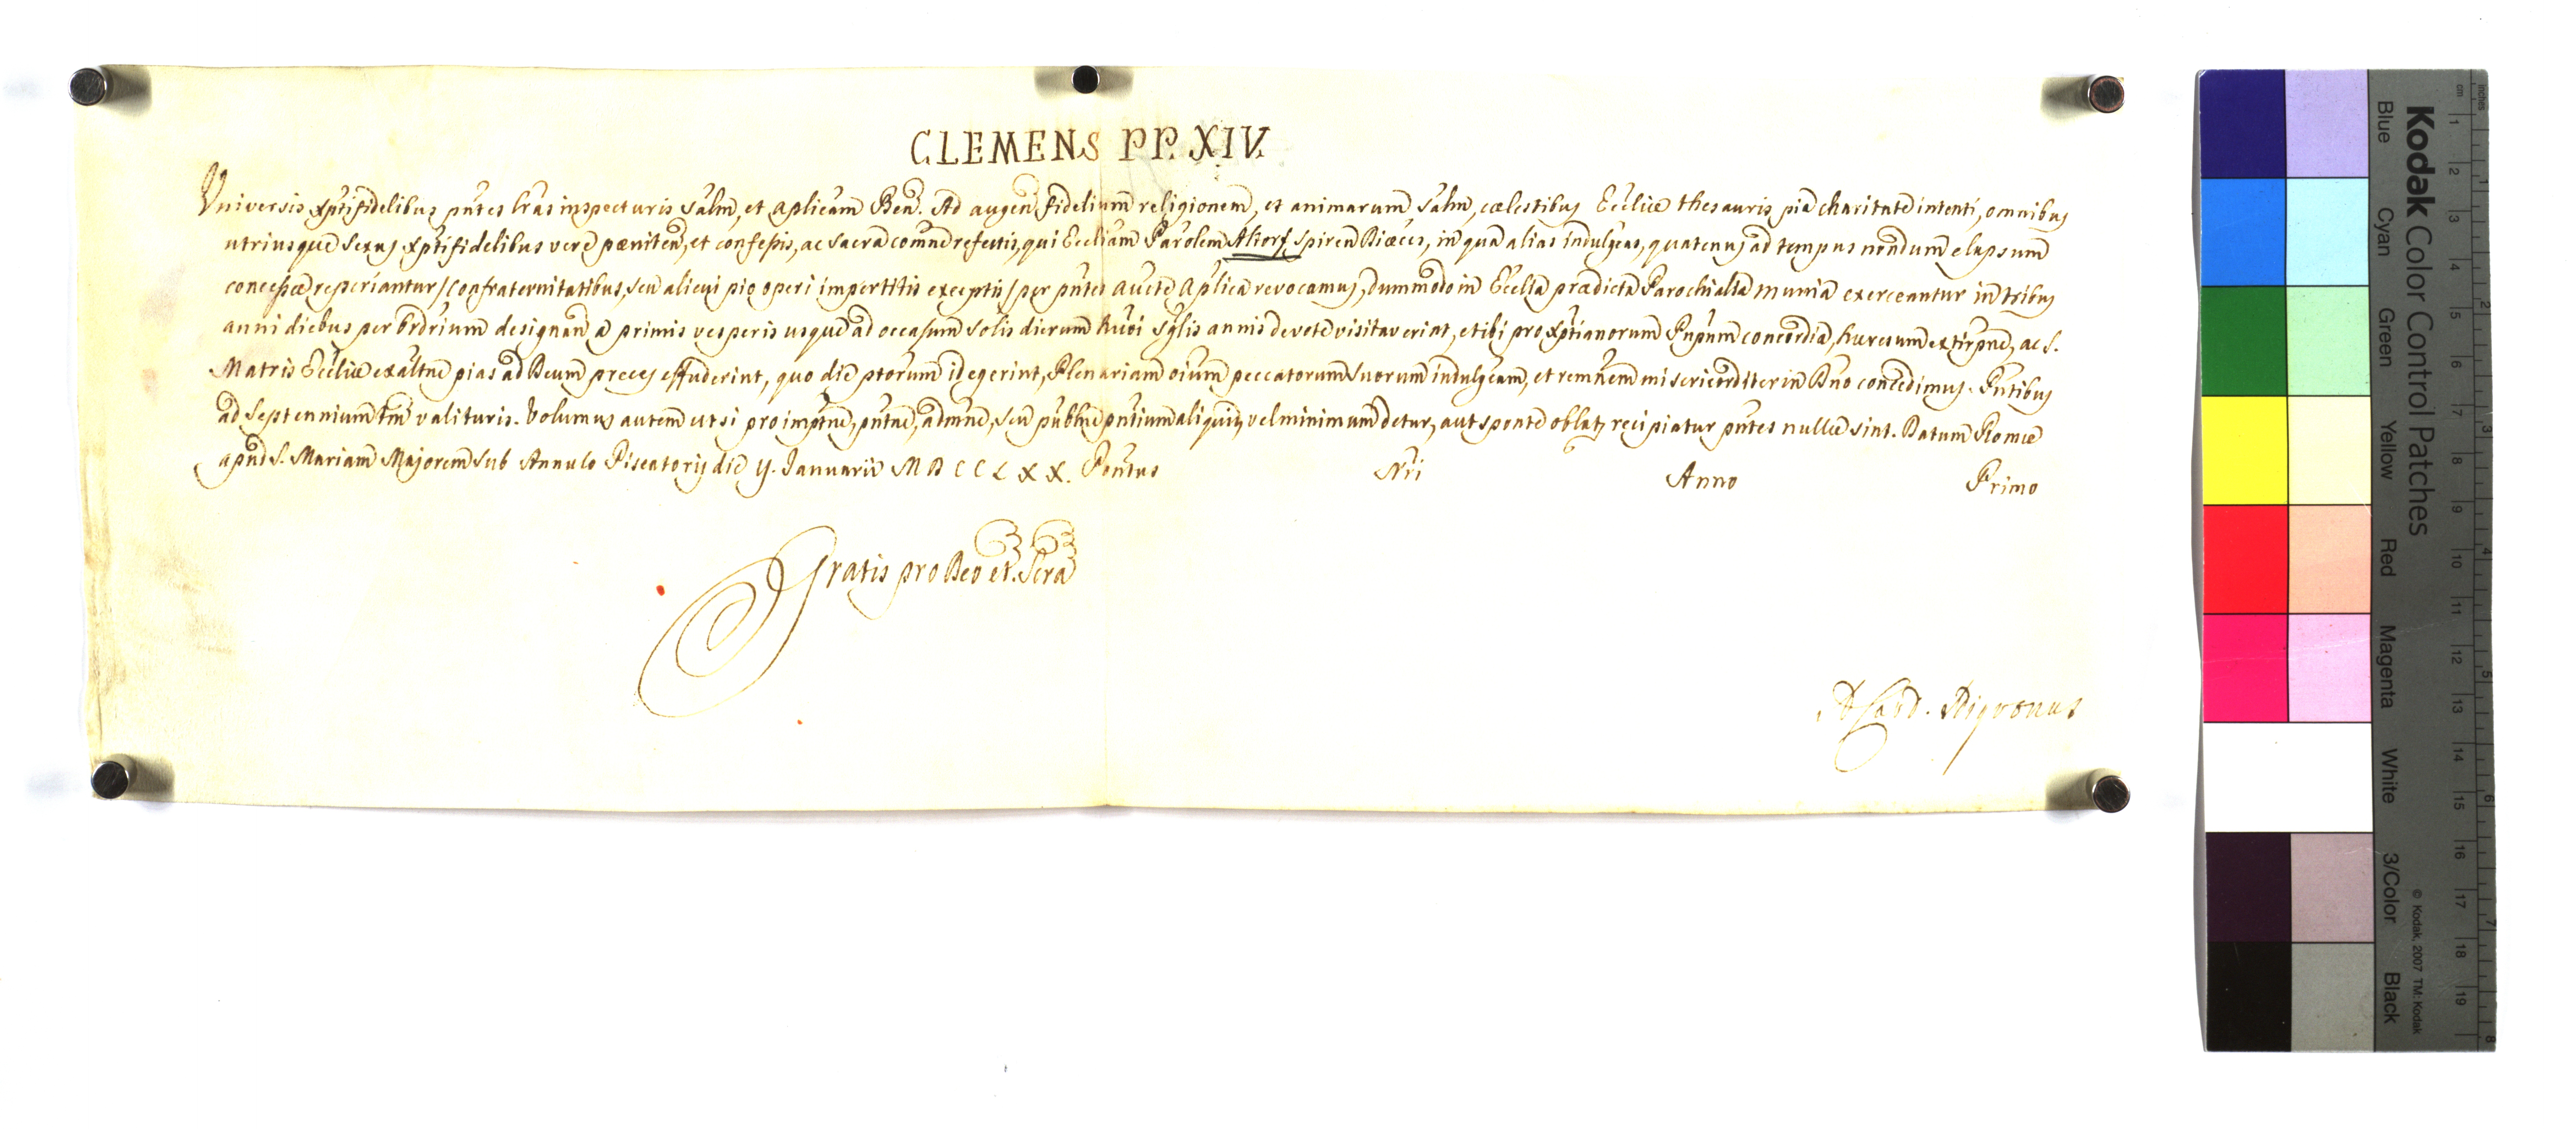 CLEMENS PP. XIV.
Universis Xptifidelibus pntes lras inspecturis Salm, et Aplicam Ben. Ad augen fidelium religionem, et animarum Salm, cælestibus Ecclïæ thesauris pia charitate intenti, omnibus
utriusque Sexus Xptifidelibus vere pæniten, et confessis, ac Sacra comne refectis, qui Eccliam Parolem Altorf Spiren Diæces, in qua alias indulgeas, quatenus ad tempus nondum elapsum
concessæ reperiantur / Confraternitatibus, Seu alicui pio operi impertitis exceptis / per pntes aucte Aplica revocamus, dummodo in Ecclia prædicta Parochialia munia exerceantur in tribus
anni diebus per Ordrium designan a primis vesperis usque ad occasum Solis dierum hujoi Sglis annis devote visitaverint, et ibi pro Xptianorum Pnpum concordia, hæresum extirpne, ac S.
Matris Eccliæ exaltne pias ad Deum preces effuderint, quo die ptorum id egerint, Plenariam oium peccatorum Suorum indulgeam, et remnem misericorditer in Dno concedimus. Pntibus
ad Septennium tm valituris. Volumus autem ut si pro imptne, pntne, admne, Seu publne pntium aliquid vel minimum detur, aut sponte oblat recipiatur pntes nullæ sint. Datum Romæ
apud S. Mariam Majorem Sub Annulo Piscatoris die Januarii MDCCLXX. Pontus Nri Anno Primo
Gratis pro Deo et Scra
A Card. Nigronus
Kodak Color Control Patches
Blue Cyan Green Yellow Red Magenta White 3/Color Black
© Kodak, 2007 TM: Kodak
cm 1 2 3 4 5 6 7 8 9 10 11 12 13 14 15 16 17 18 19
inches 1 2 3 4 5 6 7 8